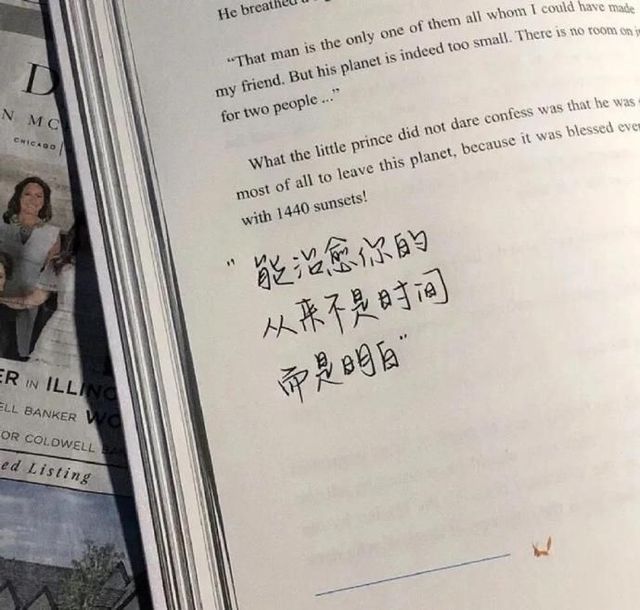 He breathed a
"That man is the only one of them all whom I could have made
my friend. But his planet is indeed too small. There is no room on
for two people ..."
What the little prince did not dare confess was that he was
most of all to leave this planet, because it was blessed
with 1440 sunsets!
"能治愈你的
从来不是时间
而是明白"
D
N MC
CHICAGO
ER IN ILLINO
ELL BANKER WO
OR COLDWELL BA
ed Listing